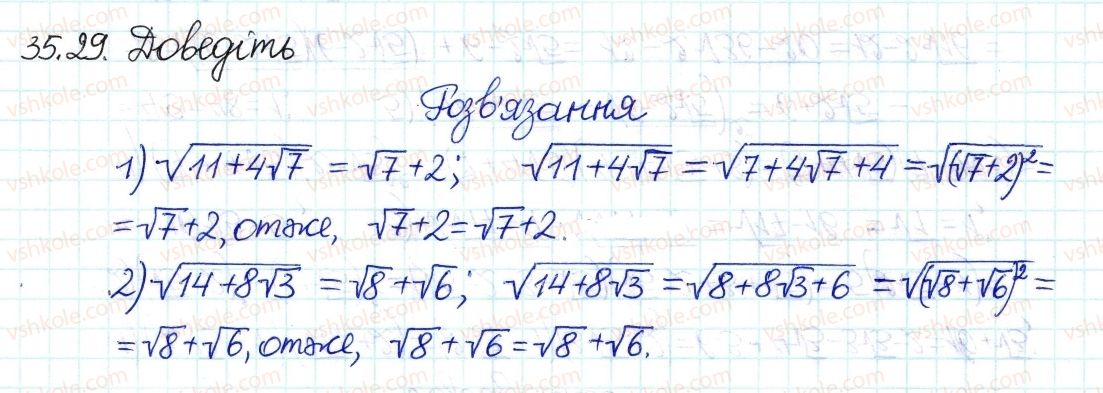 35.29. Доведіть
Розв'язання
1) √(11+4√7) = √7+2; √(11+4√7) = √(7+4√7+4) = √((√7+2)²) =
= √7+2, отже, √7+2 = √7+2.
2) √(14+8√3) = √8+√6; √(14+8√3) = √(8+8√3+6) = √((√8+√6)²) =
= √8+√6, отже, √8+√6 = √8+√6.